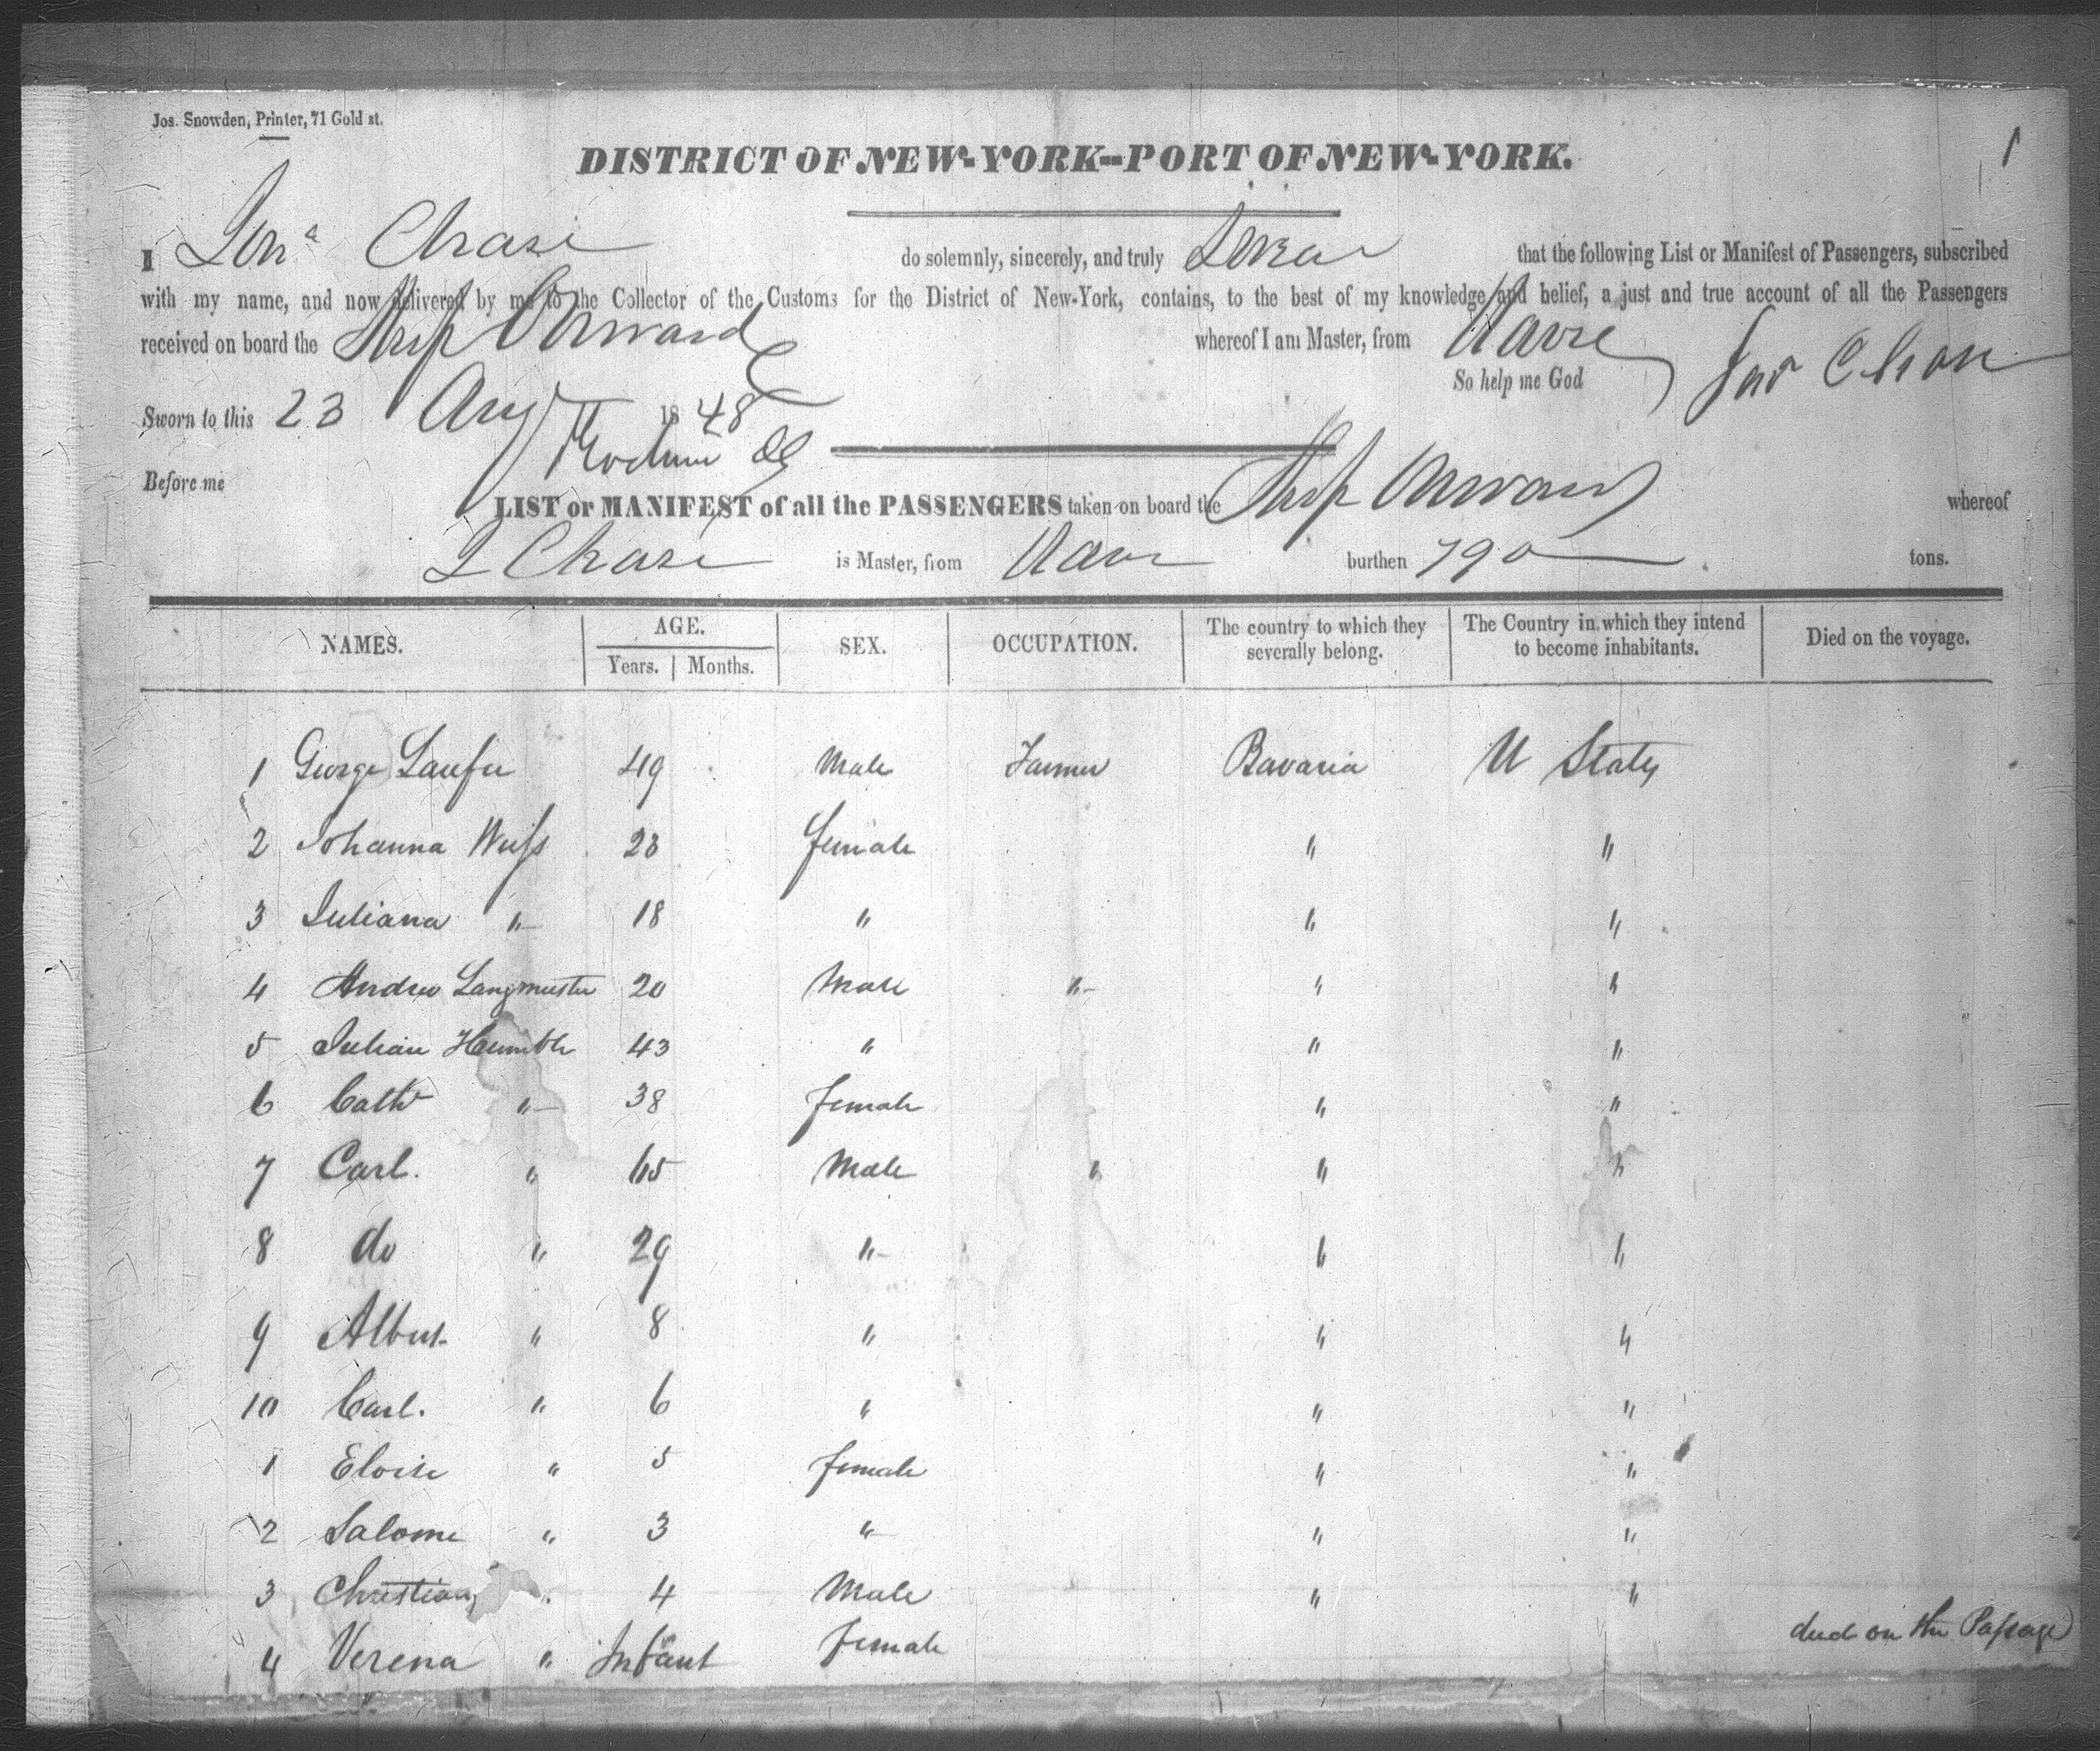 Jos. Snowden, Printer, 71 Gold st.
1
DISTRICT OF NEW-YORK--PORT OF NEW-YORK.
I Jona Chase do solemnly, sincerely, and truly Swear that the following List or Manifest of Passengers, subscribed
with my name, and now delivered by me to the Collector of the Customs for the District of New-York, contains, to the best of my knowledge and belief, a just and true account of all the Passengers
received on board the Ship Onward whereof I am Master, from Havre
So help me God Chase
Sworn to this 23 Aug 1848
Before me
LIST or MANIFEST of all the PASSENGERS taken on board the Ship Onward whereof
J Chase is Master, from Havre burthen 790 tons.
NAMES. AGE. Years. Months. SEX. OCCUPATION. The country to which they severally belong. The Country in which they intend to become inhabitants. Died on the voyage.
1 George Laufer 49 Male Farmer Bavaria U States
2 Johanna Weiss 23 female " "
3 Juliana " 18 " " "
4 Andrew Langmeister 20 Male " " "
5 Julian 43 " " "
6 Cathe " 38 female " "
7 Carl. " 65 Male " " "
8 do " 29 " " "
9 Albert " 8 " " "
10 Carl. " 6 " " "
1 Eloise " 5 female " "
2 Salome " 3 " " "
3 Christian " 4 Male " "
4 Verena " Infant female died on the Passage